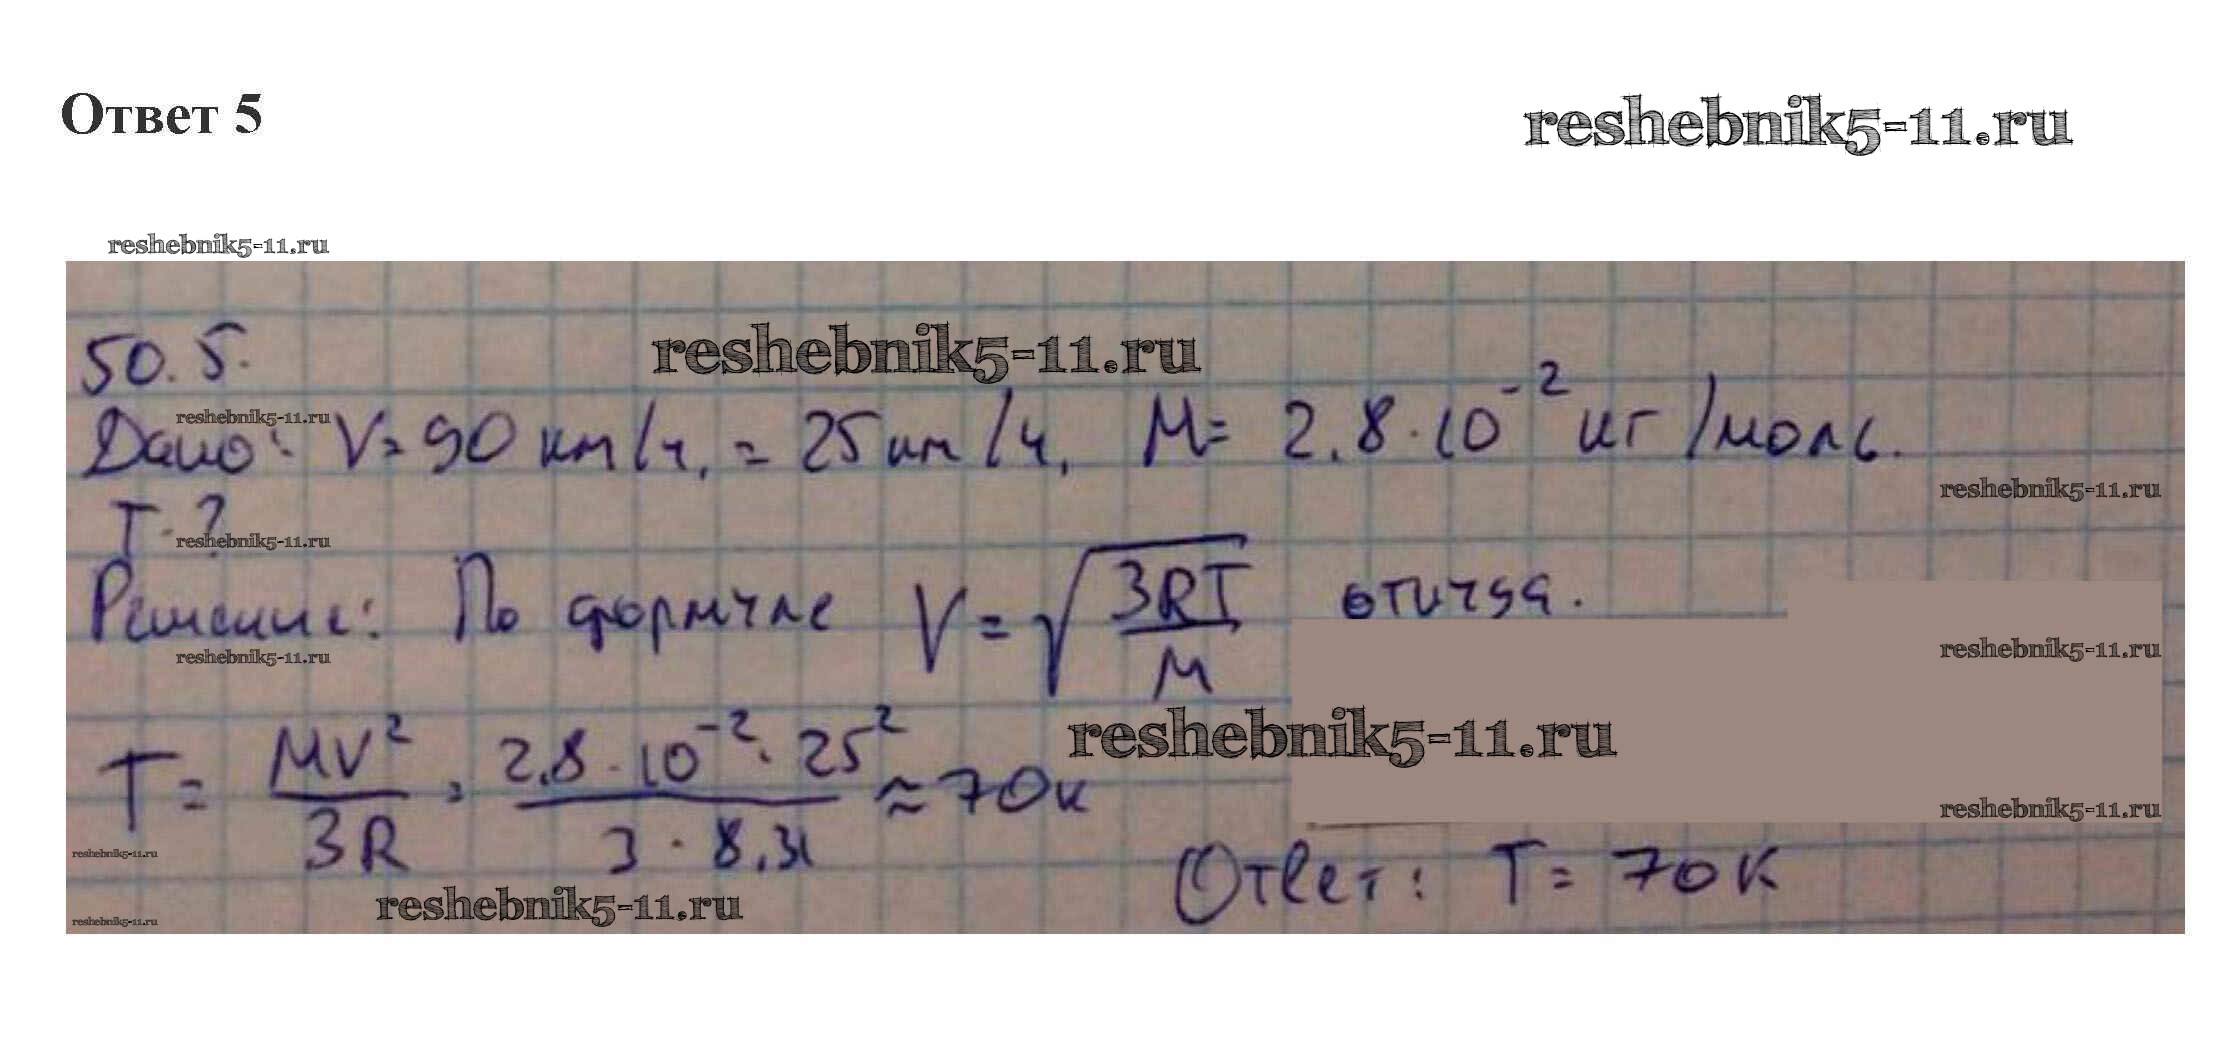 Ответ 5
reshebnik5-11.ru
reshebnik5-11.ru
50.5.
reshebnik5-11.ru
reshebnik5-11.ru
Дано: V= 90 км/ч, = 25 км/ч, M= 2.8·10⁻² кг/моль.
reshebnik5-11.ru
T-?
reshebnik5-11.ru
Решение: По формуле V = √(3RT/M) отсуда.
reshebnik5-11.ru
reshebnik5-11.ru
reshebnik5-11.ru
T = MV²/3R = 2.8·10⁻²·25²/3·8.31 ≈ 70к
reshebnik5-11.ru
reshebnik5-11.ru
Ответ: T= 70 К
reshebnik5-11.ru
reshebnik5-11.ru